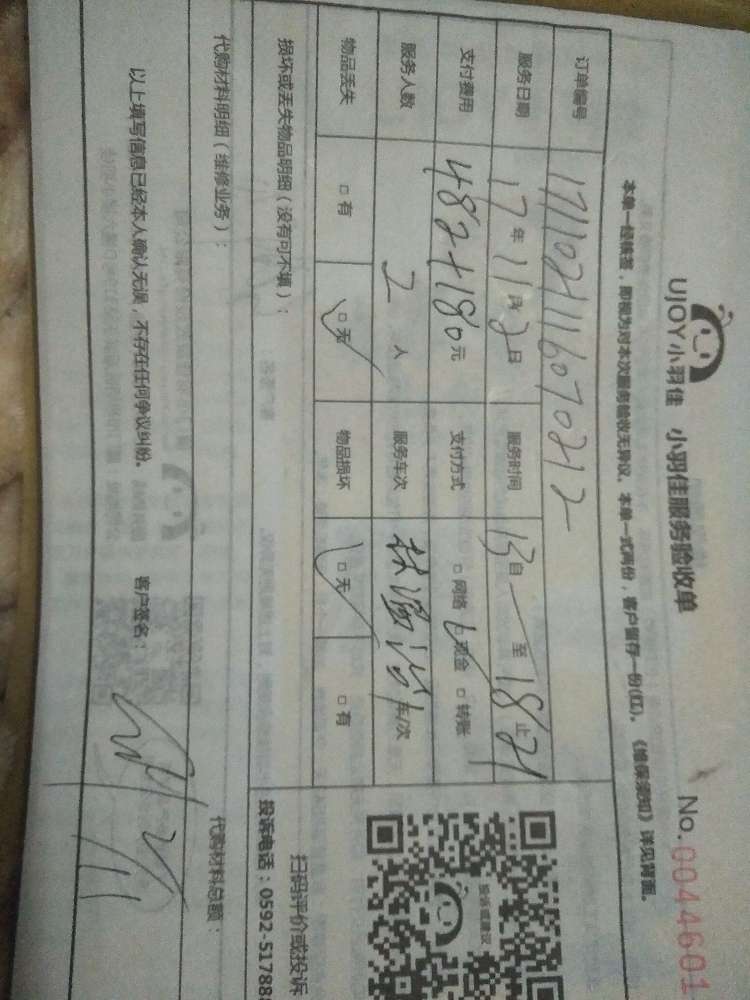 UJOY小羽佳 小羽佳服务验收单
No. 0044601
本单一经核签，即视为对本次服务验收无异议。本单一式两份，客户留存一份(红)。《维保须知》详见背面。
订单编号 1711021116070212
服务日期 17年11月2日 服务时间 13自 至18:21止
支付费用 482+180元 支付方式 □网络 □现金 □转账
服务人数 2人 服务车次 车/次
物品丢失 □有 □无 物品损坏 □无 □有
损坏或丢失物品明细（没有可不填）：
代购材料明细（维修业务）： 代购材料总额：
以上填写信息已经本人确认无误，不存在任何争议纠纷。 客户签名：
投诉或建议
扫码评价或投诉
投诉电话：0592-51788